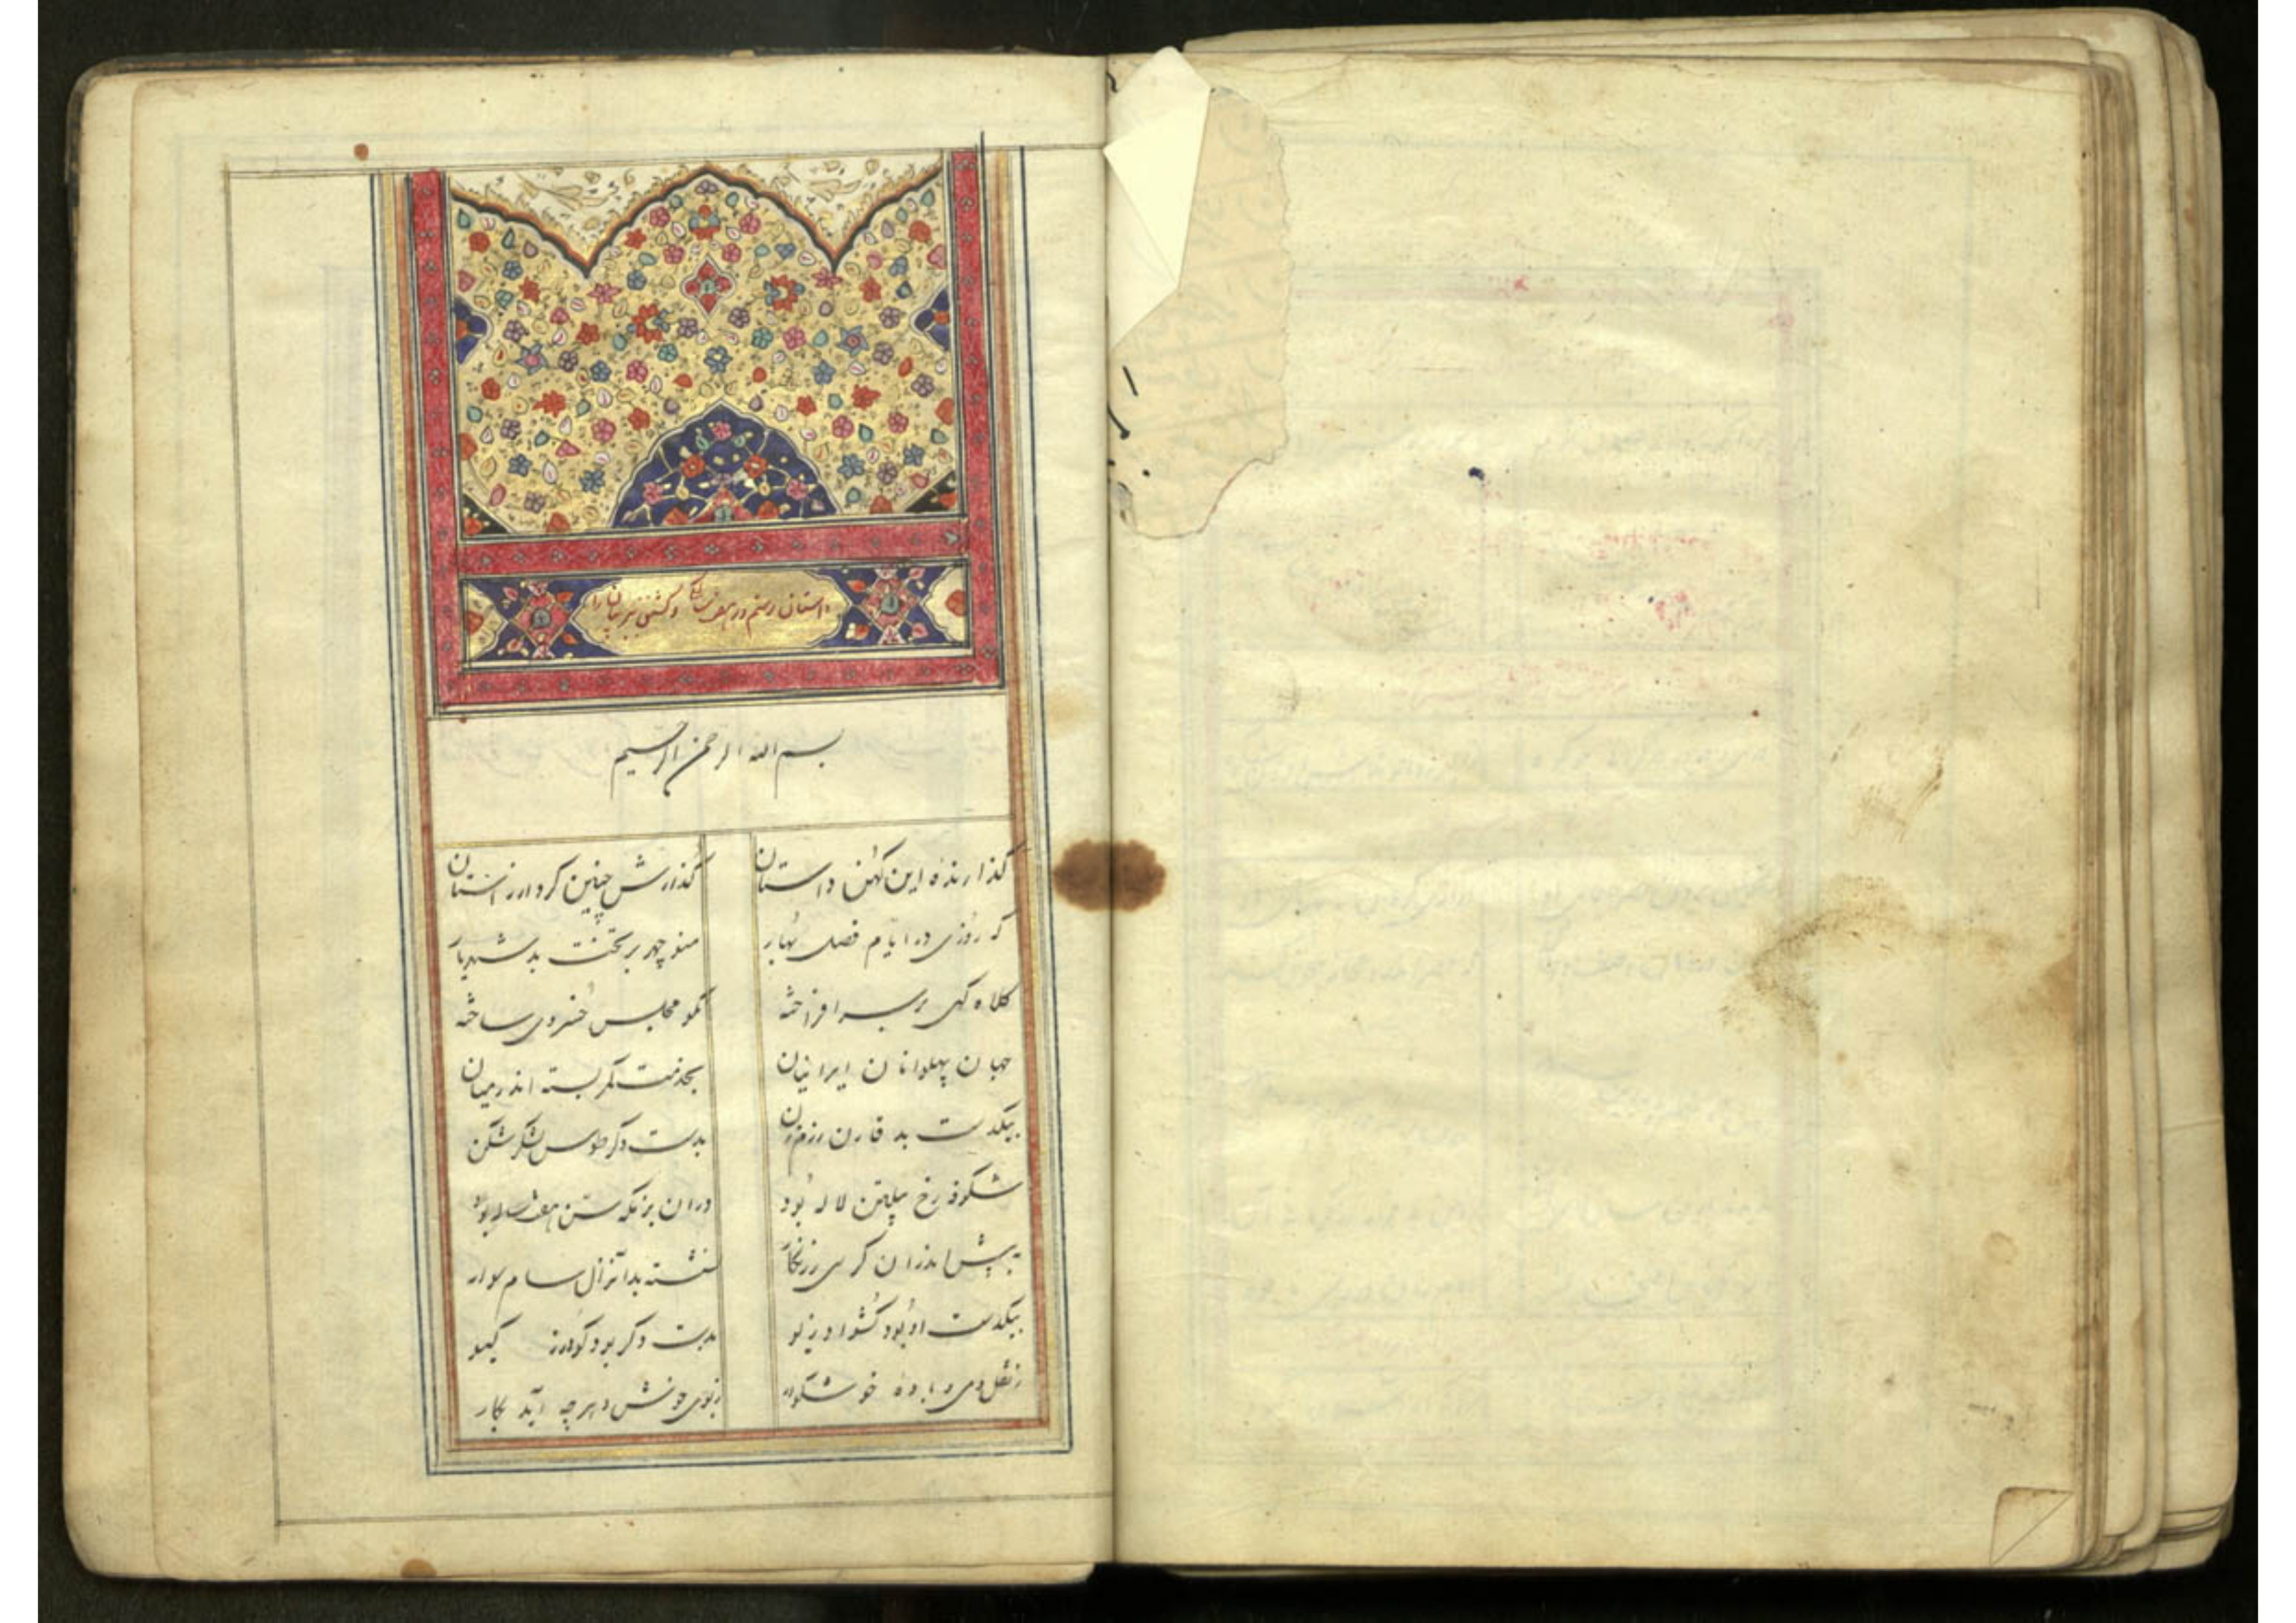 داستان رستم در هفت سالگی و کشتن ببر بیان را
بسم الله الرحمن الرحیم
گذارنده این کهن داستان گذارش چنین کرد از راستان
که روزی در ایام فصل بهار منوچهر بر تخت بد شهریار
کلاه کئی بر سر افراخته نکو مجلس خسروی ساخته
جهان پهلوانان ایرانیان بخدمت کمر بسته اندر میان
بیکدست بد قارن رزم زن بدست دگر طوس لشکر شکن
شکوفه رخ پیلتن لاله بود دران بزمگه ستن هفت ساله بود
به پیش اندران کرسی زرنگار نشسته بدانزال سام سوار
بیکدست او بود کشواد و زیو بدست دگر بود گودرز گیو
ز نقل و می و باده خوشگوار ز بوی خوش و هرچه آید بکار